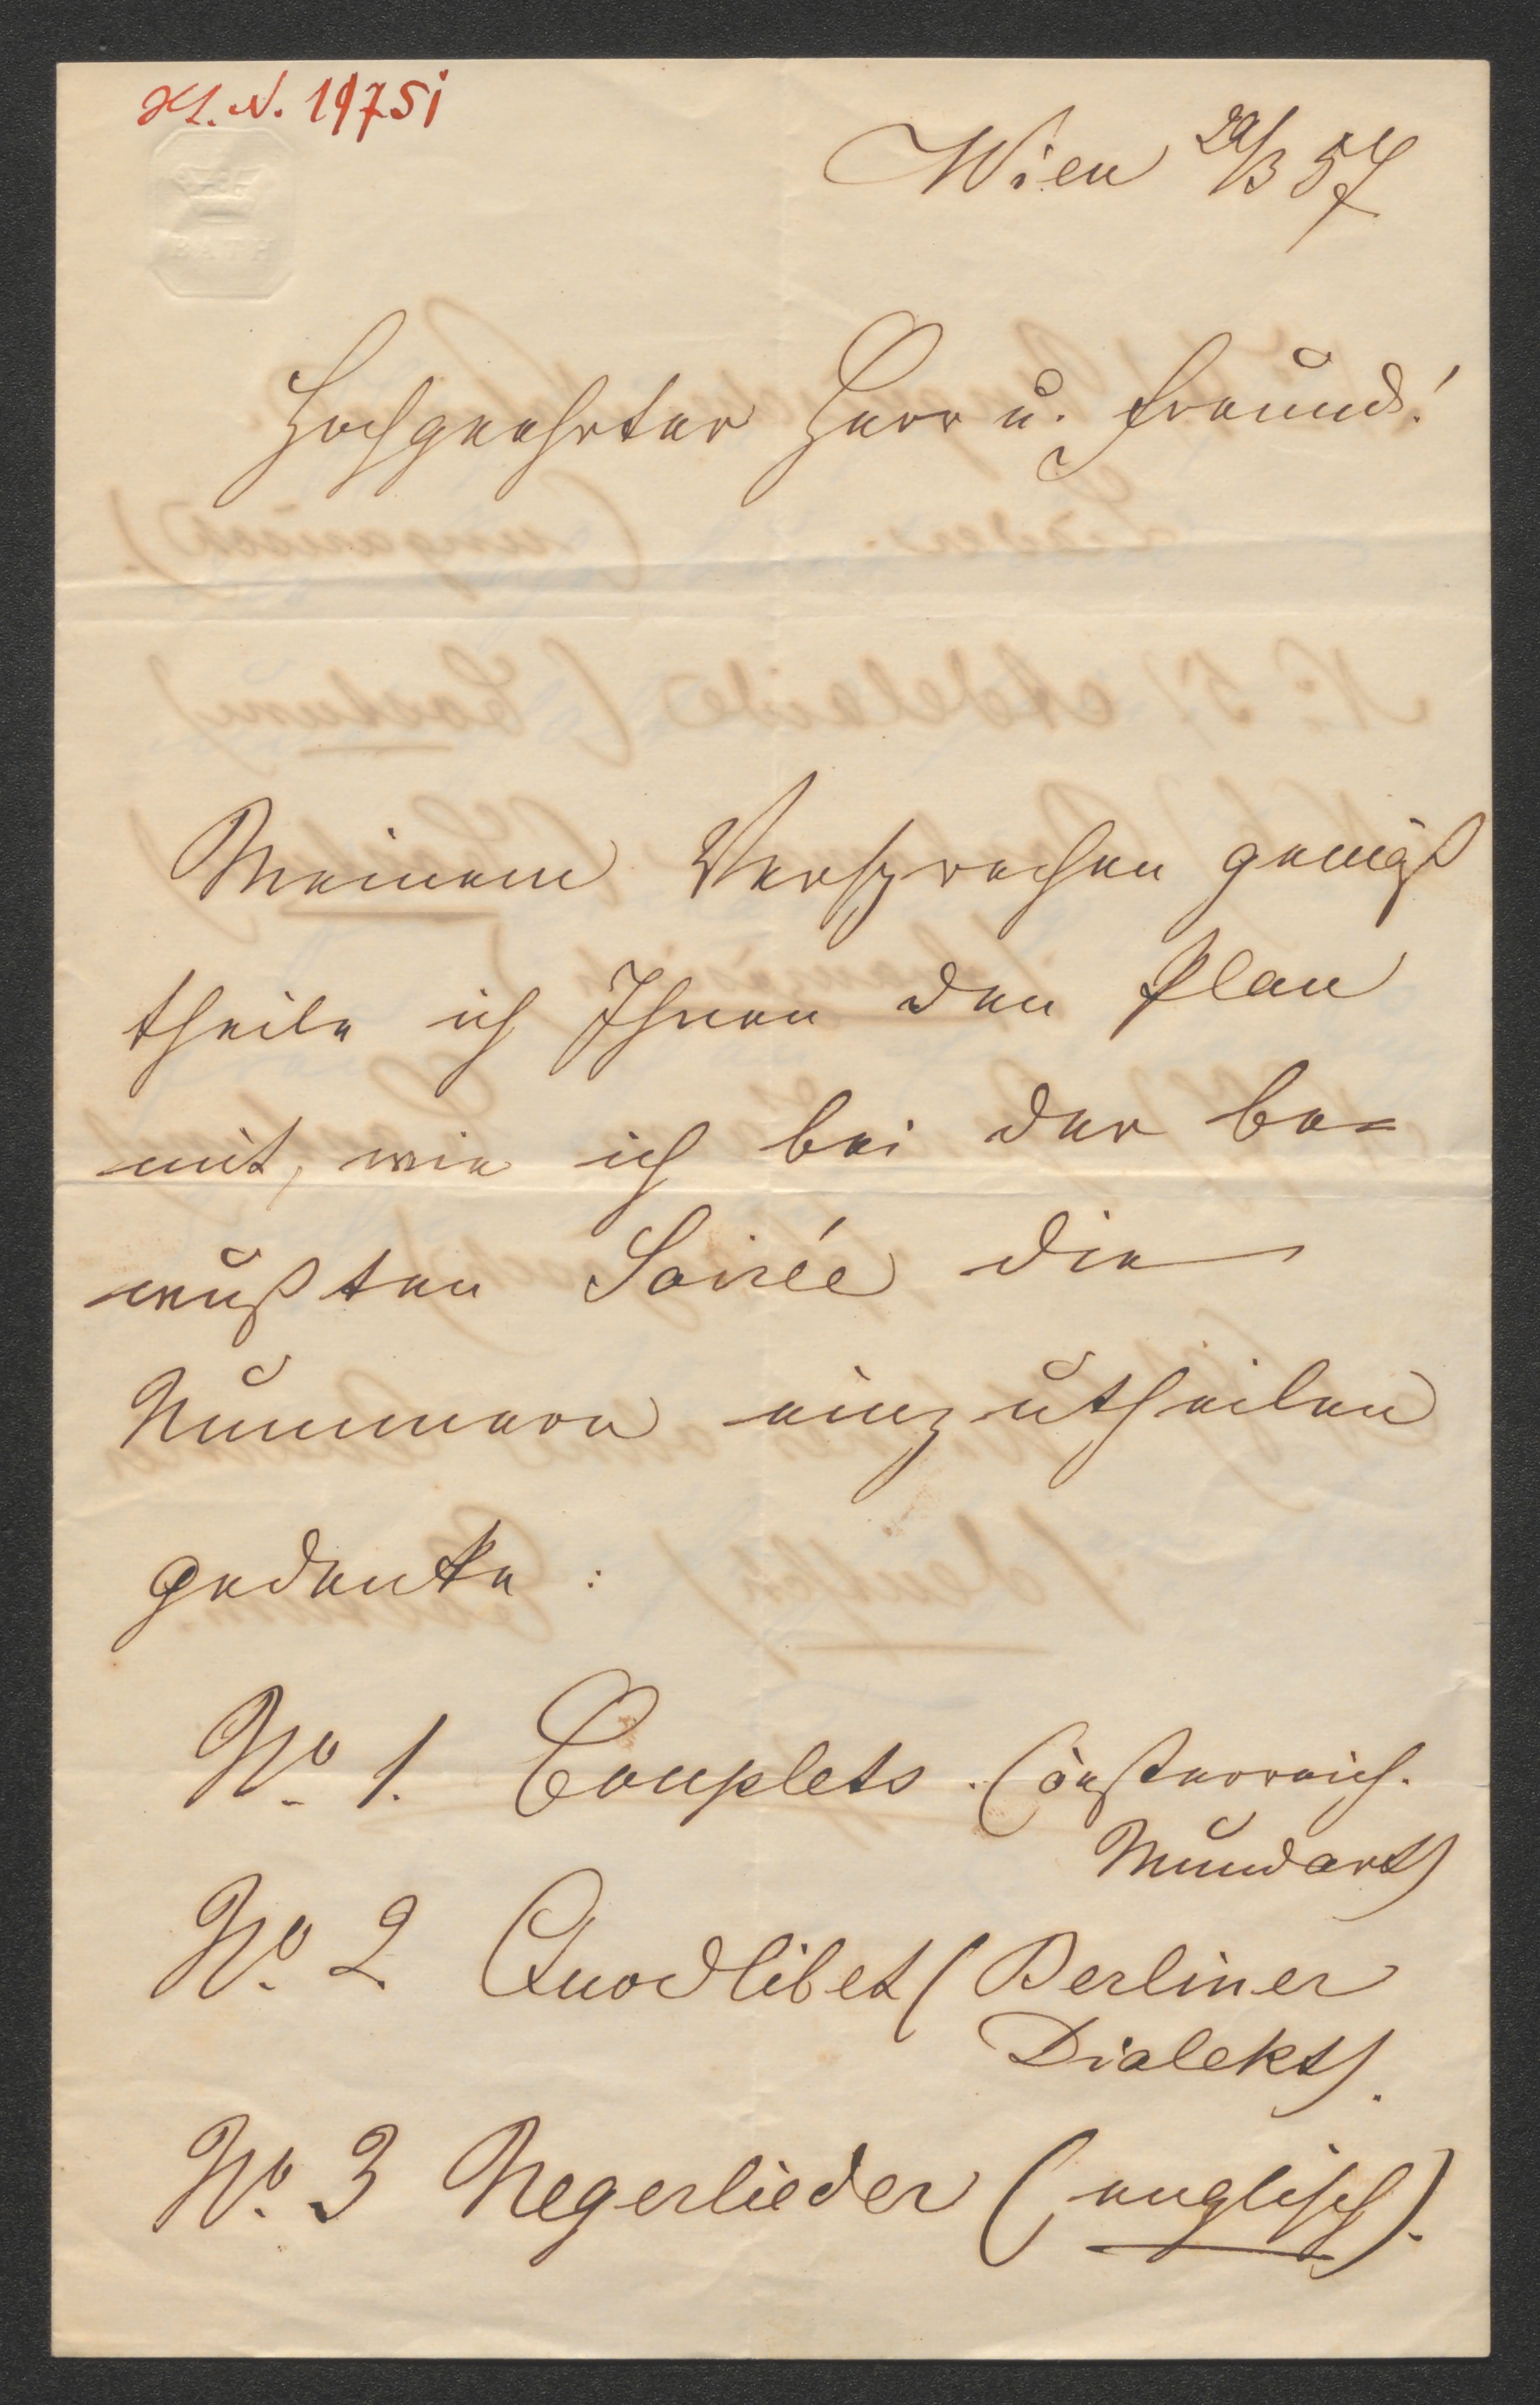 H.I.N. 19751
Wien 29/3 57
Hochgeehrter Herr u. Freund!
Meinem Versprechen gemäß
theile ich Ihnen den Plan
mit, wie ich bei der be=
wußten Soirée die
Nummern einzutheilen
gedenke:
No 1. Couplets. (österreich.
Mundart)
No. 2 Quodlibet (Berliner
Dialekt).
No. 3 Negerlieder (englisch).